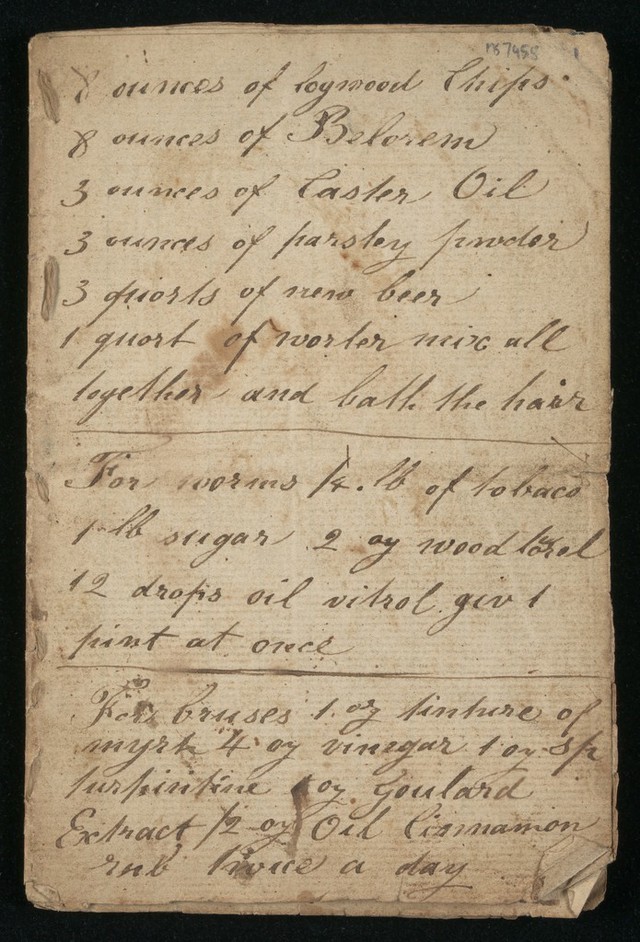 ms 7455 1
8 ounces of logwood Chips
8 ounces of Belorem
3 ounces of Caster Oil
3 ounces of parsley pwder
3 quorts of new beer
1 quort of worter mix all
together and bath the hair
For worms 1/4 lb of tobaco
1 lb sugar 2 oy wood
12 drops oil vitrol giv 1
pint at once
For bruses 1 oy tinture of
myrh 4 oy vinegar 1 oy sp
turpintine 1 oy Goulard
Extract 1/2 oy Oil Cinnamon
rub twice a day